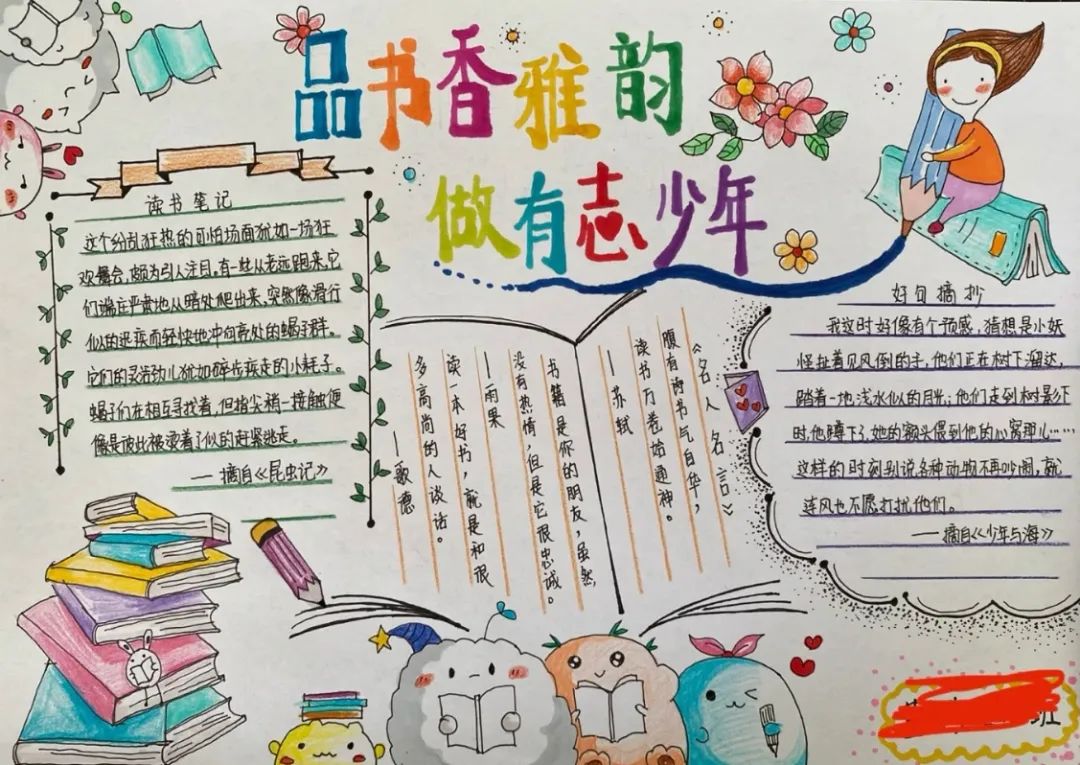 品书香雅韵
做有志少年
读书笔记
这个纷乱狂热的可怕场面犹如一场狂
欢舞会,颇为引人注目。有一些从老远跑来,它
们端庄严肃地从暗处爬出来,突然像滑行
似的迅疾而轻快地冲向亮处的蝎子群。
它们的灵活劲儿犹如碎步疾走的小耗子。
蝎子们在相互寻找着,但指尖稍一接触便
像是彼此被烫着了似的赶紧逃走。
——摘自《昆虫记》
《名人名言》
腹有诗书气自华,
读书万卷始通神。
——苏轼
书籍是你的朋友,虽然,
没有热情,但是它很忠诚。
——雨果
读一本好书,就是和很
多高尚的人谈话。
——歌德
好句摘抄
我这时好像有个预感,猜想是小妖
怪扯着见风倒的手,他们正在树下溜达,
踏着一地浅水似的月光;他们走到树影下
时,他蹲下了,她的额头偎到他的心窝那儿……
这样的时刻别说各种动物不再吵闹,就
连风也不愿打扰他们。
——摘自《少年与海》
班